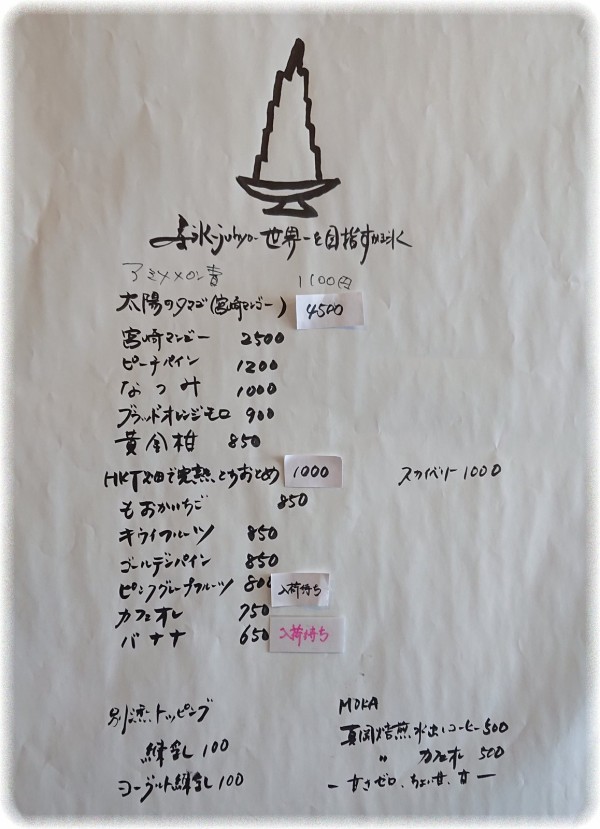 氷-juhyo-世界一を目指すかき氷
アミメメロン青 1100円
太陽のタマゴ(宮崎マンゴー) 4500
宮崎マンゴー 2500
ピーチパイン 1200
なつみ 1000
ブラッドオレンジモロ 900
黄金柑 850
HKT畑で完熟、とちおとめ 1000 スカイベリー 1000
もおかいちご 850
キウイフルーツ 850
ゴールデンパイン 850
ピンクグレープフルーツ 800 入荷待ち
カフェオレ 750
バナナ 650 入荷待ち
別添トッピング
練乳 100
ヨーグルト練乳 100
MOKA
真岡焙煎水出しコーヒー 500
〃 カフェオレ 500
-甘さゼロ、ちょい甘、甘-